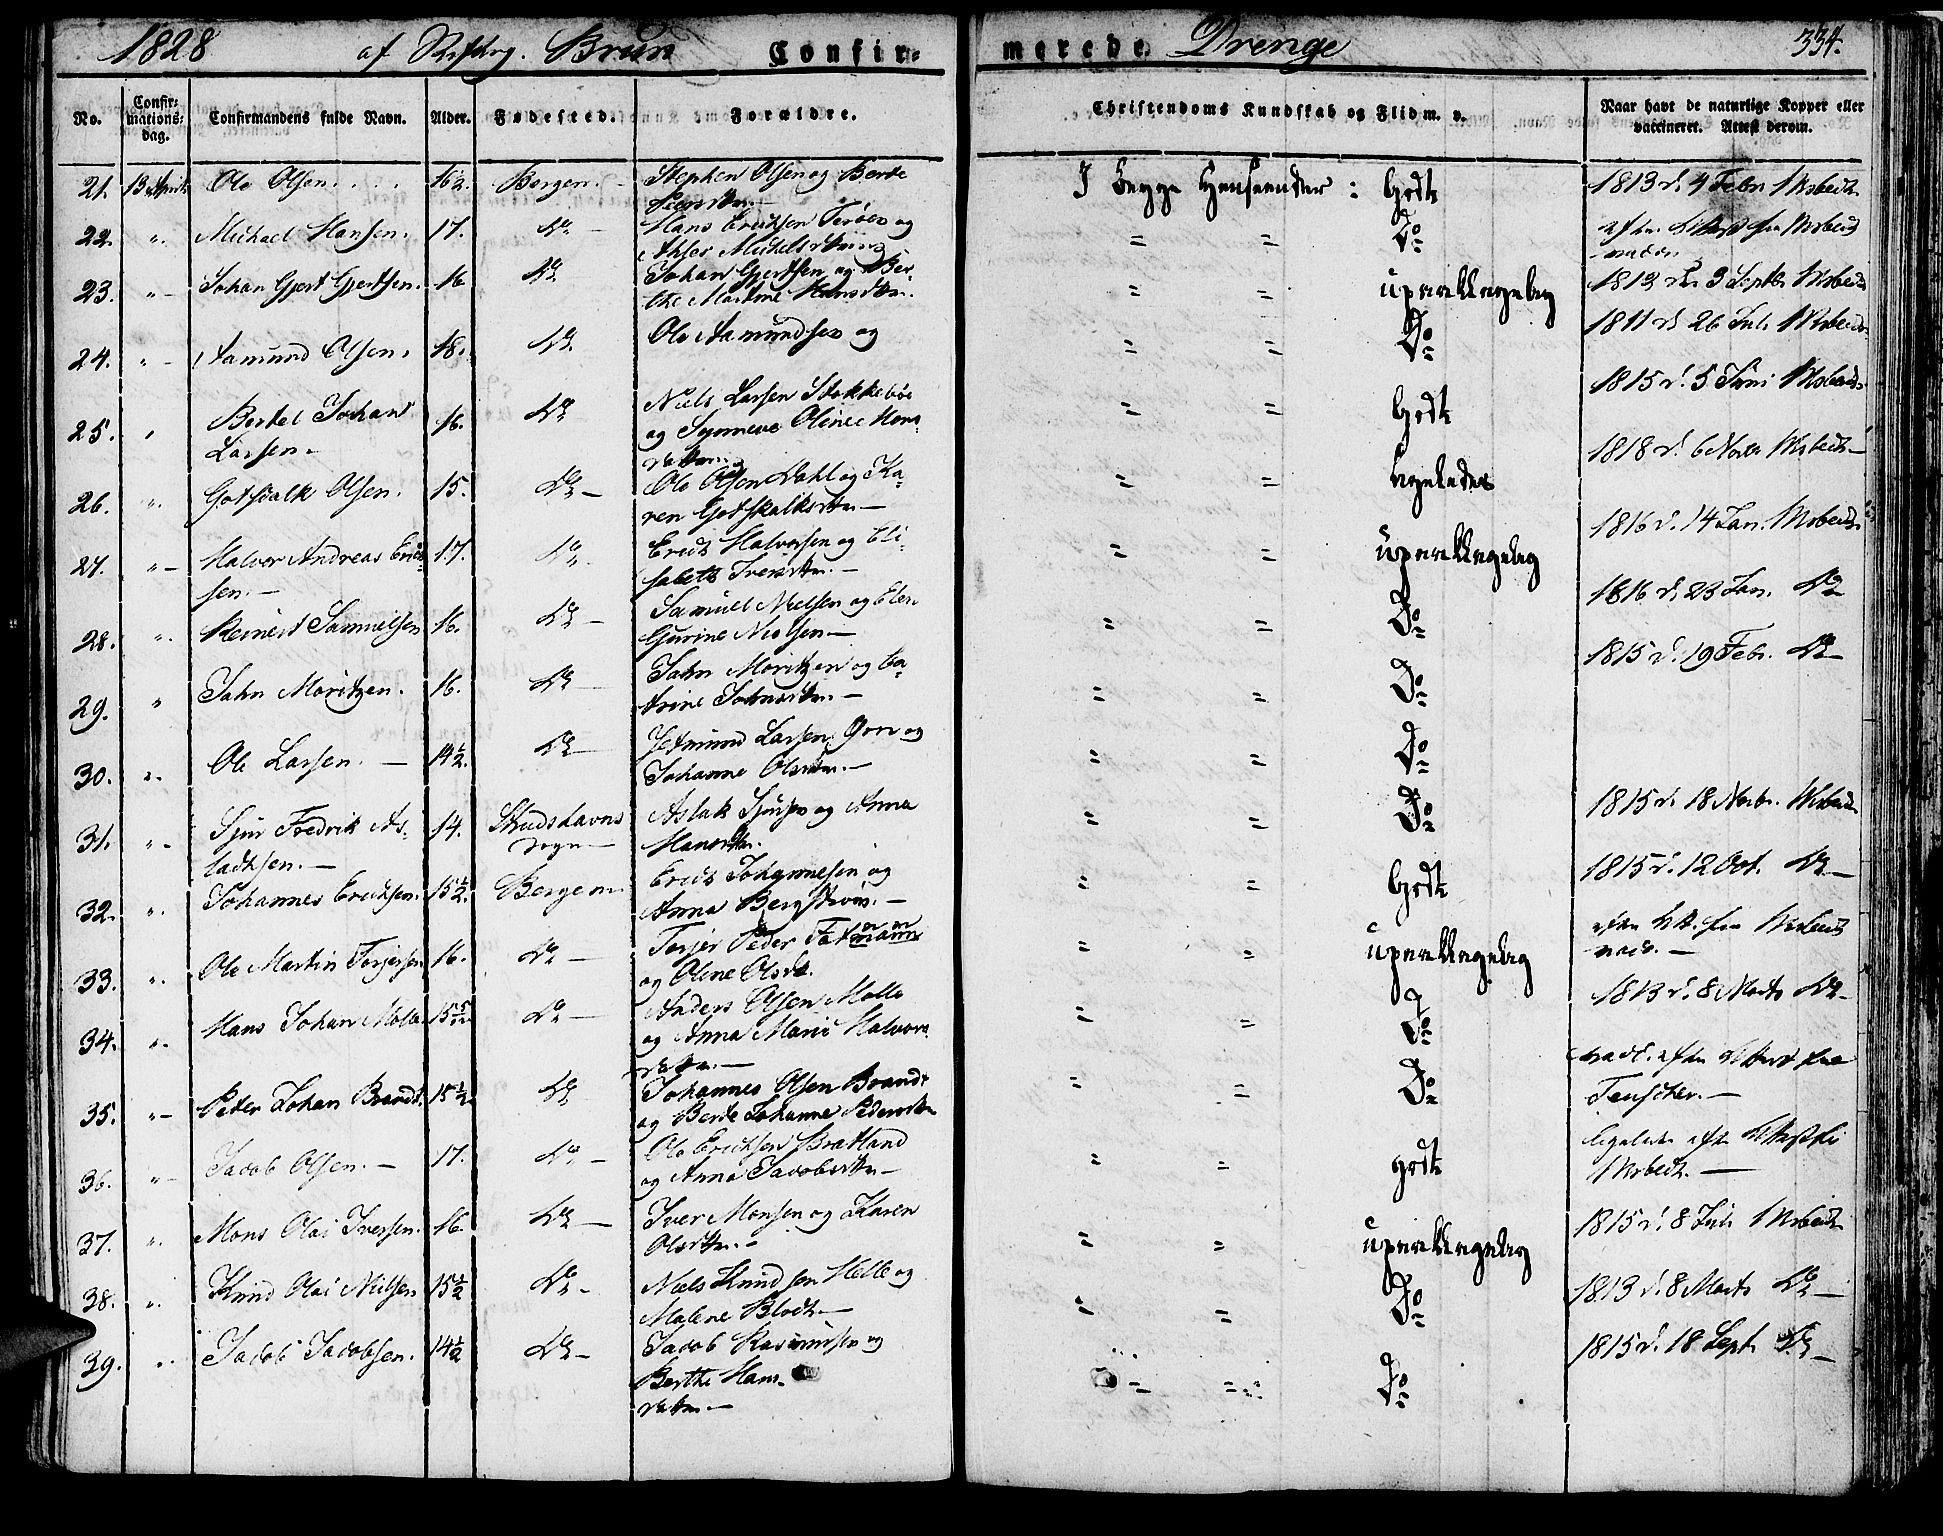 1828 af Bruun Confir= merede Drenge 334.
No. Confir=mations=dag. Confirmandens fulde Navn. Alder. Fødested. Forældre. Christendoms Kundskab og Flid m. v. Naar havt de naturlige Kopper eller vaccineret. Attest derom.
21. 13 April Ole Olsen 16½ Bergen Stephen Olsen og Berte I begge Henseender: Godt 1813 d. 4 Febr
22. " Michael Hansen. 17. Do Hans Ericksen Terøen og = = Do
23. " Johan Gjert Gjertsen. 16 Do Johan Gjertsen og Ber-
the Martine Hansdtr. = = upaaklagelig 1813 d. 3 Septb.
24. " Aamund Olsen. 18. Do Ole Aamundsen og = = Do 1811 d. 26 Juli
25. " Bertel Johan
Larsen. 16. Do Niels Larsen Stokkebøe
og Synneve Oline Mons-
datter. = = Godt 1815 d. 5 Juni
26. " Gotskalk Olsen. 15. Do Ole Olsen Dahl og Ka-
ren Gotskalksdtr. = = ligeledes 1818 d. 6 Novbr
27. " Halvor Andreas Erick-
sen. 17. Do Erick Halvorsen og Eli-
sabeth Iversdtr. = = upaaklagelig 1816 d. 14 Jan.
28. " Reinert Samuelsen 16. Do Samuel Nielsen og Elen
Gurine Nielsen = = Do 1816 d. 23 Jan. Do
29. " John Moritzen. 16. Do John Moritzen og Ca-
trine Johnsdtr. = = Do 1815 d. 19 Febr. Do
30. " Ole Larsen. 14½. Do Jetmund Larsen og
Johanne Olsdtr. = = Do
31. " Sjur Fredrik As-
lacksen. 14. Studshavns
Sogn Aslak Sjursen og Anna
Hansdtr. = = Do 1815 d. 18 Novbr.
32. " Johannes Ericksen. 15½. Bergen Erick Johannesen og
Anna Bergstrøm. = = Godt 1815 d. 12 Oct. Do
33. " Ole Martin Torjersen 16. Do Torjer Peder
og Oline Olsdt. = = upaaklagelig
34. " Hans Johan Molle 15 Do Anders Olsen Molle
og Anna Marie Halvors-
datter. = = Do 1813 d. 8 Marts Do
35. " Peter Johan Brandt. 15½ Do Johannes Olsen Brandt
og Berte Johanne Pedersdtr = = Do
36. " Jacob Olsen. 17. Do Ole Ericksen Bratland
og Anna Jacobsdtr = = godt
37. " Mons Olai Iversen. 16. Do Iver Monsen og Karen
Olsdtr. = = upaaklagelig 1815 d. 8 Juli
38. " Knud Olai Nielsen 15½ Do Niels Knudsen Helle og
Malene Block = = Do 1813 d. 8 Marts Do
39. " Jacob Jacobsen. 14½ Do Jacob Rasmussen og
Berthe Hans-
datter. = = Do 1815 d. 18 Sept. Do